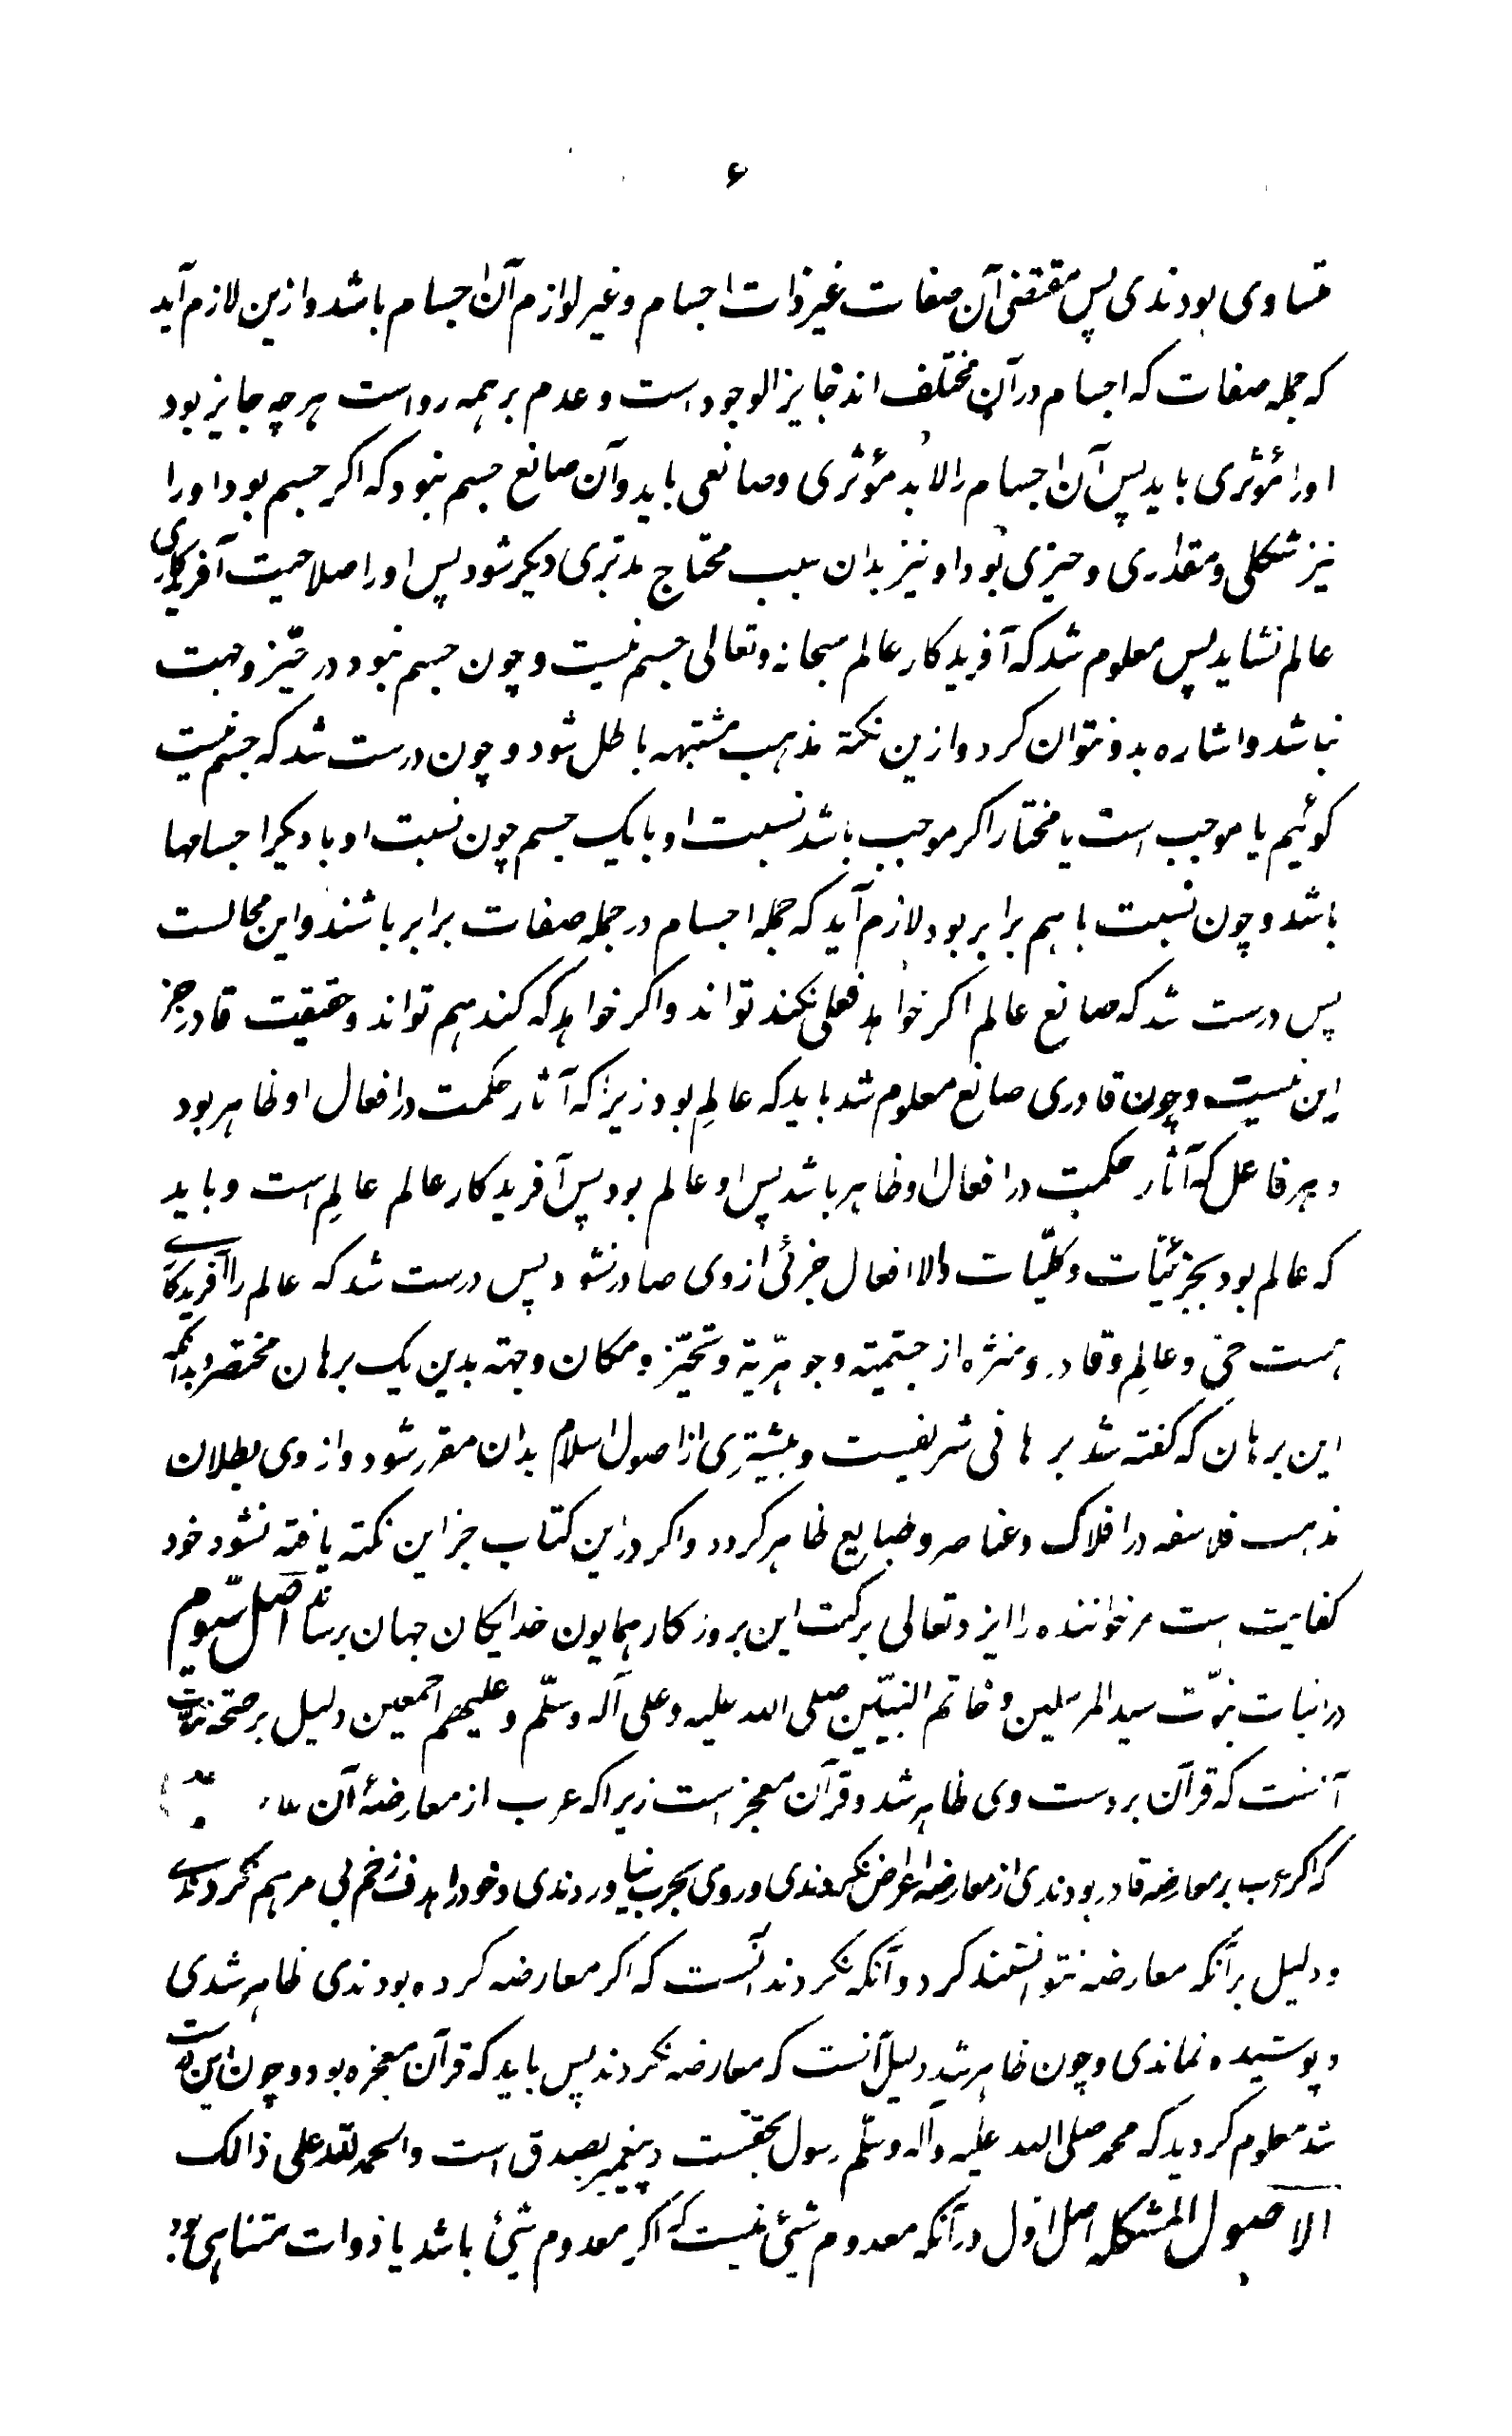 ۶
متساوی بودندی پس مقتضی آن صفات غیر ذات اجسام و غیر لوازم آن اجسام باشد و ازین لازم آید
که جمله صفات که اجسام در آن مختلف اند جایز الوجود است و عدم بر همه رواست هرچه جایز بود
اورا مؤثری باید پس آن اجسام را لابد مؤثری و صانعی باید و آن صانع جسم نبود که اکر جسم بود اورا
نیز شکلی و مقداری و حیزی بود او نیز بدان سبب محتاج مدبری دیکر شود پس اورا صلاحیت آفریدکاری
عالم نشاید پس معلوم شد که آفریدکار عالم سبحانه و تعالی جسم نیست و چون جسم نبود در حیّز و جهت
نباشد و اشاره بدو نتوان کرد و ازین نکته مذهب مشبهه باطل شود و چون درست شد که جسم نیست
کوئیم یا موجب است یا مختار اکر موجب باشد نسبت او با یک جسم چون نسبت او با دیکر اجسامها
باشد و چون نسبت با هم برابر بود لازم آید که جمله اجسام در جمله صفات برابر باشند و این محالست
پس درست شد که صانع عالم اکر خواهد فعلی نکند تواند و اکر خواهد که کند هم تواند و حقیقت قادر جز
این نیست و چون قادری صانع معلوم شد باید که عالِم بود زیرا که آثار حکمت در افعال او ظاهر بود
و هر فاعل که آثار حکمت در افعال او ظاهر باشد پس او عالم بود پس آفریدکار عالم عالِم است و باید
که عالم بود بجزئیّات و کلّیات والا افعال جزئی از وی صادر نشود پس درست شد که عالم را آفریدکاری
هست حیّ و عالِم و قادر و منزّه از جسمیّته و جوهریّة و تحیّز و مکان و جهته بدین یک برهان مختصر و بدانکه
این برهان که کفته شد برهانی شریفیست و بیشتری از اصول اسلام بدان مقرر شود و از وی بطلان
مذهب فلاسفه در افلاک و عناصر و طبایع ظاهر کردد و اکر در این کتاب جز این نکته یافته نشود خود
کفایت است مر خواننده را ایزد تعالی برکت این بروزکار همایون خدایکان جهان برساناد اصل سیّوم
در اثبات نبوّت سید المرسلین و خاتم النبیّین صلی الله علیه و علی آله و سلّم و علیهم اجمعین دلیل بر صحّة نبوّت
آنست که قرآن بر دست وی ظاهر شد و قرآن معجز است زیرا که عرب از معارضهٔ آن
که اکر عرب بر معارضه قادر بودندی از معارضه اعراض نکردندی و روی بحرب نیاوردندی و خود را هدف زخم بی مرهم نکردندی
و دلیل بر آنکه معارضه نتوانستند کرد و آنکه نکردند آنست که اکر معارضه کرده بودندی ظاهر شدی
و پوشیده نماندی و چون ظاهر نشد دلیل آنست که معارضه نکردند پس باید که قرآن معجزه بود و چون این ثابت
شد معلوم کردید که محمد صلی الله علیه و آله و سلّم رسول بحقّست و پیغمبر بصدق است والحمد لله علی ذالک
الاصول المشکله اصل اول در آنکه معدوم شیئ نیست که اکر معدوم شیئ باشد یا ذوات متناهی بود